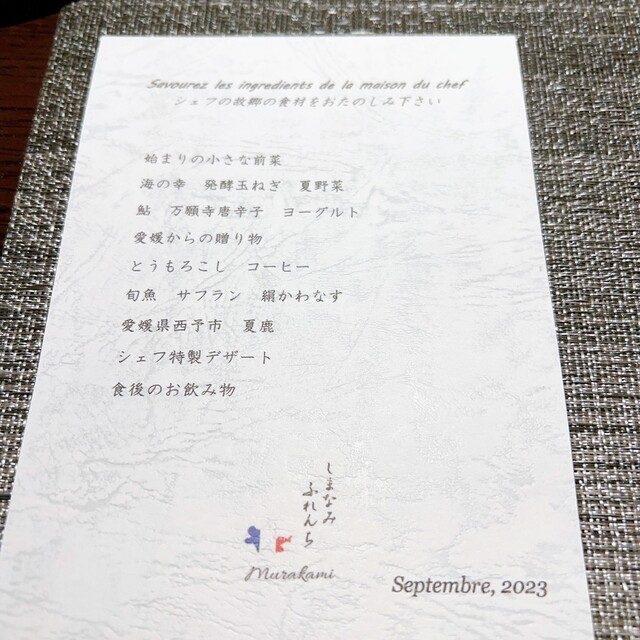 Savourez les ingredients de la maison du chef
シェフの故郷の食材をおたのしみ下さい
始まりの小さな前菜
海の幸　発酵玉ねぎ　夏野菜
鮎　万願寺唐辛子　ヨーグルト
愛媛からの贈り物
とうもろこし　コーヒー
旬魚　サフラン　絹かわなす
愛媛県西予市　夏鹿
シェフ特製デザート
食後のお飲み物
しまなみ
ふれんち
Murakami
Septembre, 2023